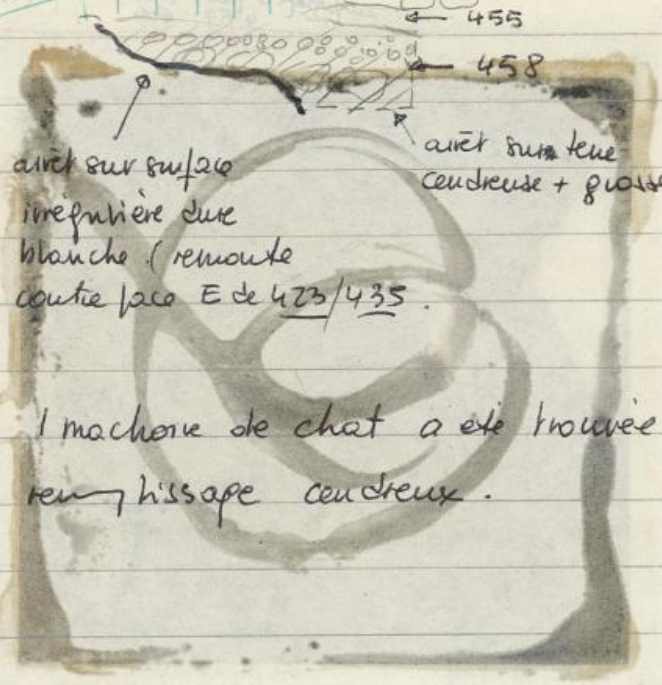 455
458
arrêt sur surface
irrégulière dure
blanche (remonte
contre face E de 423/435.
arrêt sur terre
cendreuse + grosse
1 machoire de chat a été trouvée
remplissage cendreux.